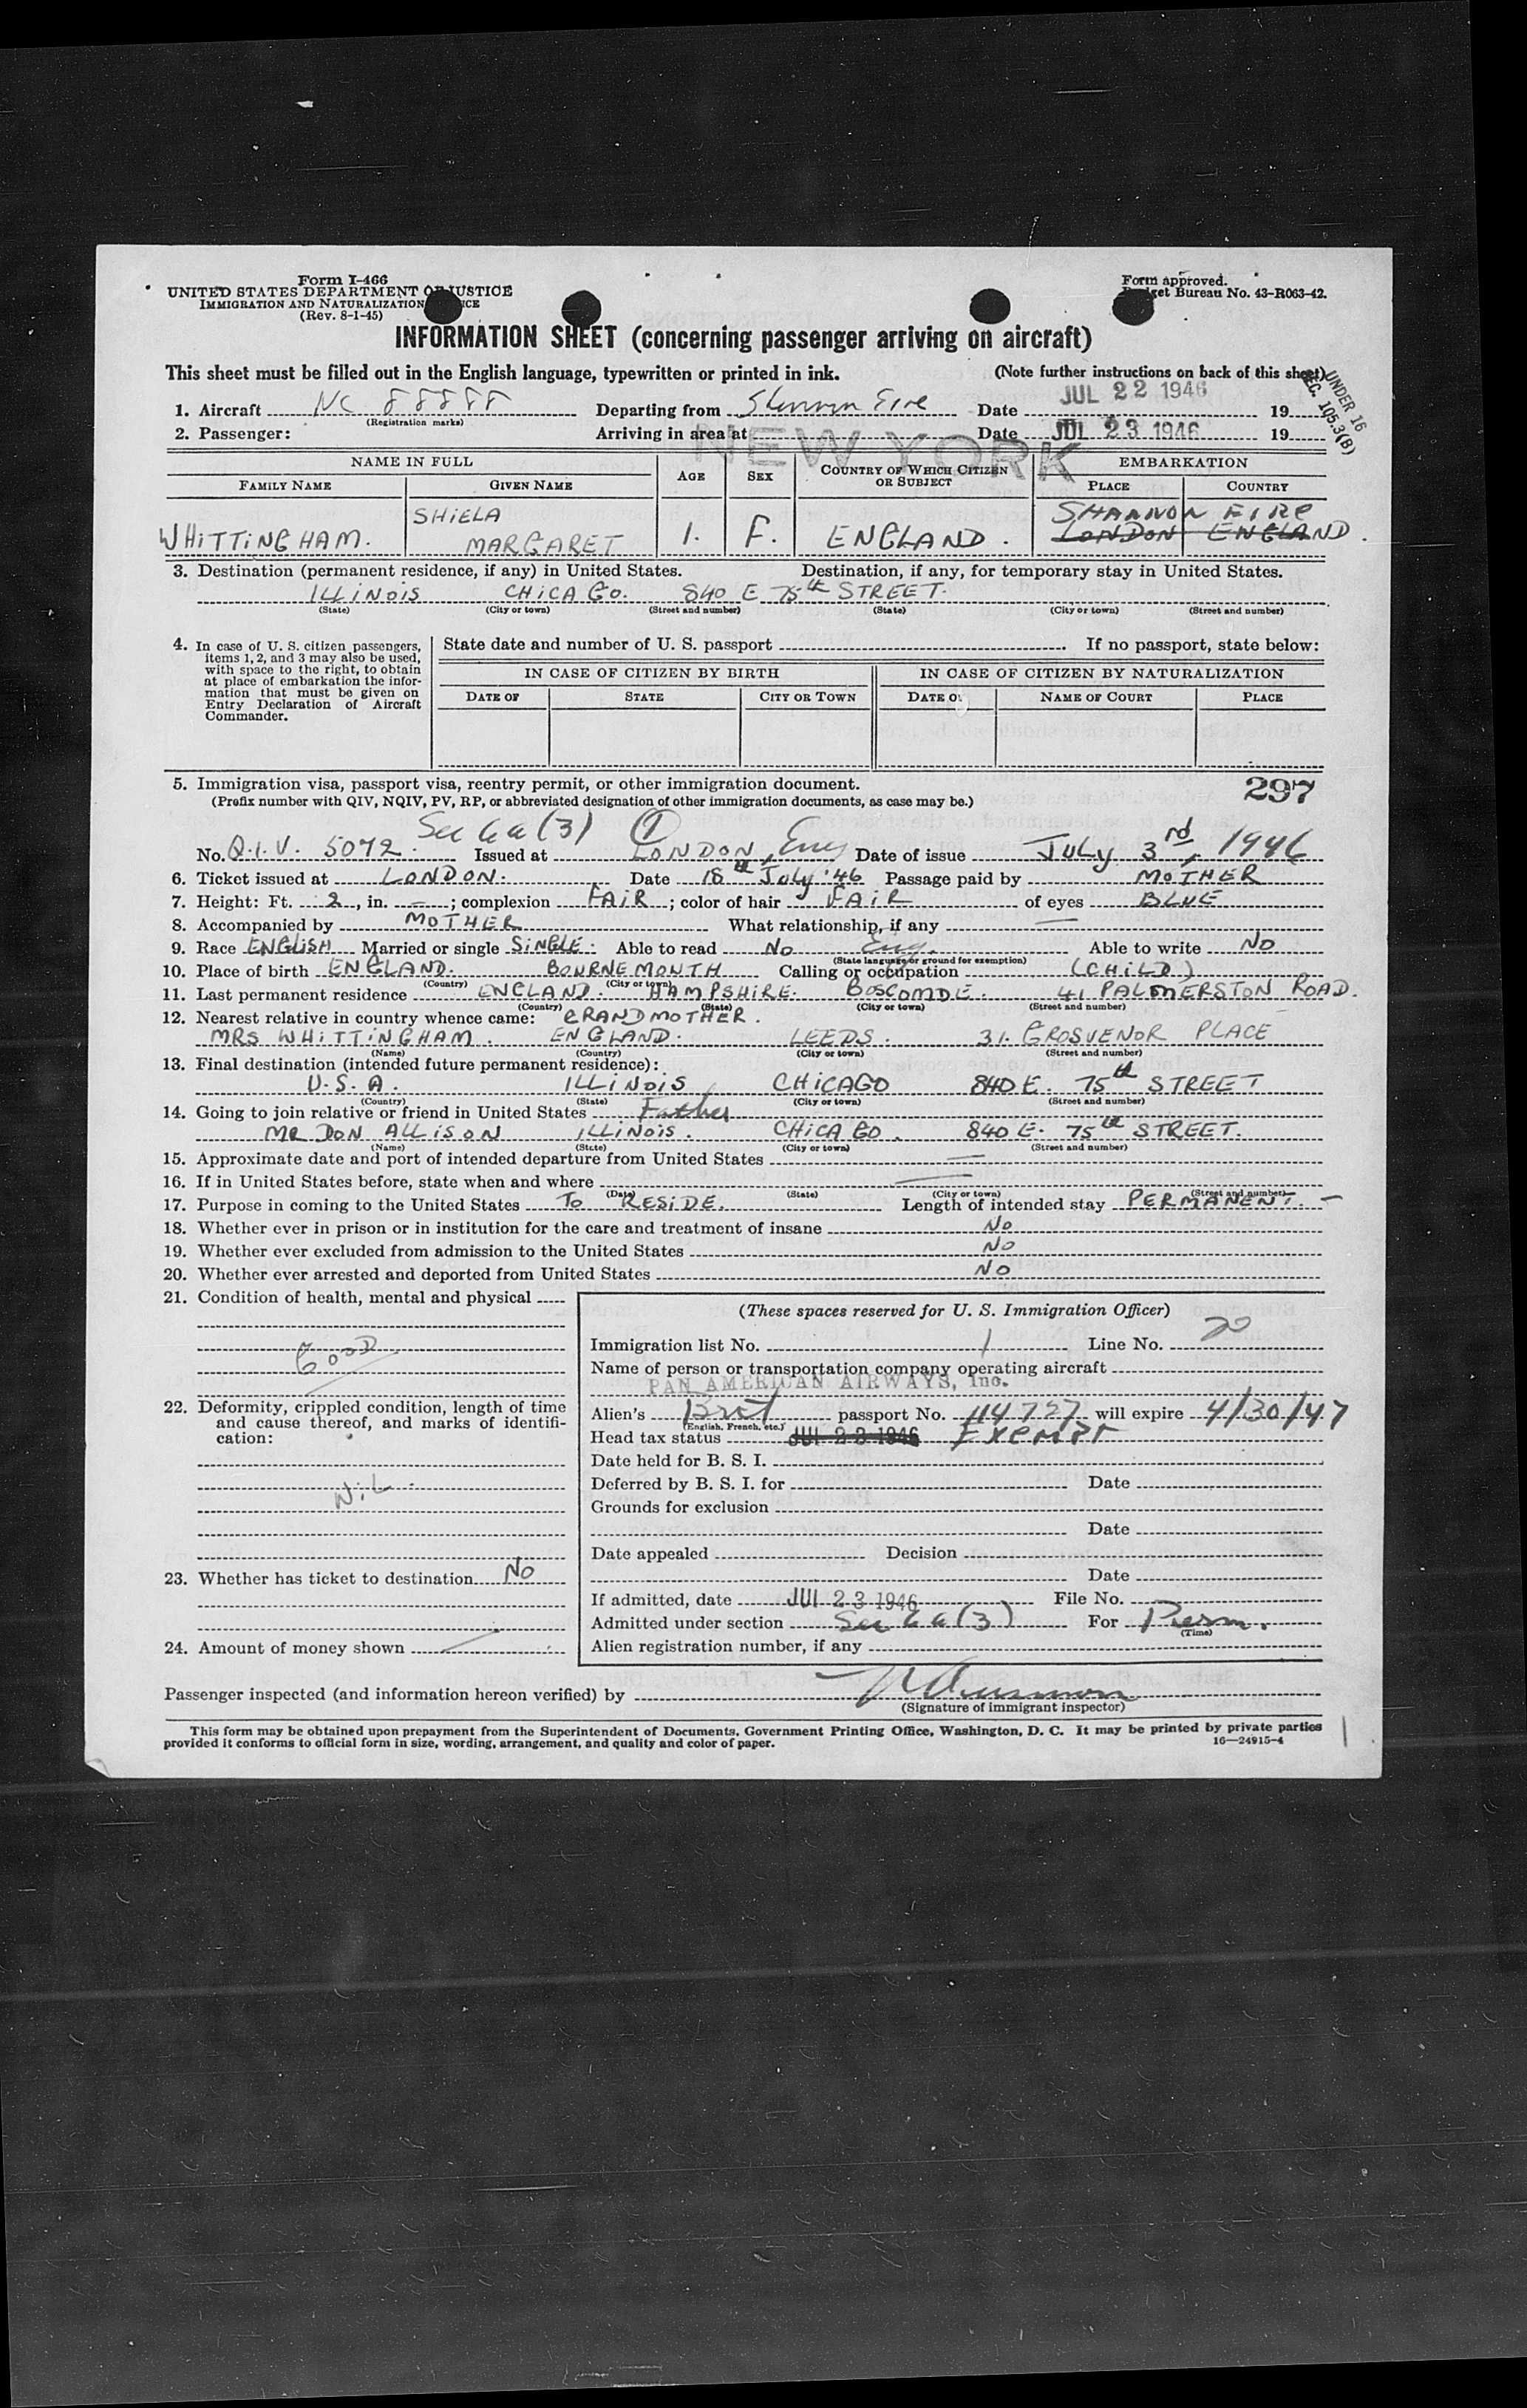 Form I-466
UNITED STATES DEPARTMENT OF JUSTICE
IMMIGRATION AND NATURALIZATION
(Rev. 8-1-45)
Form approved.
Budget Bureau No. 43-R063-42.
INFORMATION SHEET (concerning passenger arriving on aircraft)
This sheet must be filled out in the English language, typewritten or printed in ink. (Note further instructions on back of this sheet)
UNDER 16
SEC. 105.3(B)
1. Aircraft NC 88888 Departing from Shannon Eire Date JUL 22 1946 19
(Registration marks)
2. Passenger: Arriving in area at NEW YORK Date JUL 23 1946 19
NAME IN FULL AGE SEX COUNTRY OF WHICH CITIZEN OR SUBJECT EMBARKATION
FAMILY NAME GIVEN NAME PLACE COUNTRY
SHIELA SHANNON EIRE
WHITTINGHAM. MARGARET 1. F. ENGLAND. LONDON ENGLAND.
3. Destination (permanent residence, if any) in United States. Destination, if any, for temporary stay in United States.
ILLINOIS CHICAGO. 840 E 75th STREET.
(State) (City or town) (Street and number) (State) (City or town) (Street and number)
4. In case of U. S. citizen passengers, items 1, 2, and 3 may also be used, with space to the right, to obtain at place of embarkation the information that must be given on Entry Declaration of Aircraft Commander.
State date and number of U. S. passport If no passport, state below:
IN CASE OF CITIZEN BY BIRTH IN CASE OF CITIZEN BY NATURALIZATION
DATE OF STATE CITY OR TOWN DATE OF NAME OF COURT PLACE
5. Immigration visa, passport visa, reentry permit, or other immigration document. 297
(Prefix number with QIV, NQIV, PV, RP, or abbreviated designation of other immigration documents, as case may be.)
Sec 6a(3) 1
No. Q.I.V. 5072. Issued at LONDON, Eng Date of issue JULY 3rd, 1946
6. Ticket issued at LONDON. Date 18th July '46 Passage paid by MOTHER
7. Height: Ft. 2, in. –; complexion FAIR; color of hair FAIR of eyes BLUE
8. Accompanied by MOTHER What relationship, if any —
9. Race ENGLISH Married or single SINGLE. Able to read NO Eng. Able to write NO
(State language or ground for exemption)
10. Place of birth ENGLAND. BOURNEMONTH Calling or occupation (CHILD)
(Country) (City or town)
11. Last permanent residence ENGLAND. HAMPSHIRE. BOSCOMDE. 41 PALMERSTON ROAD.
(Country) (State) (City or town) (Street and number)
12. Nearest relative in country whence came: GRANDMOTHER.
MRS WHITTINGHAM. ENGLAND. LEEDS. 31. GROSVENOR PLACE
(Name) (Country) (City or town) (Street and number)
13. Final destination (intended future permanent residence):
U.S.A. ILLINOIS CHICAGO 840 E. 75th STREET
(Country) (State) (City or town) (Street and number)
14. Going to join relative or friend in United States Father
MR DON ALLISON ILLINOIS. CHICAGO. 840 E. 75th STREET.
(Name) (State) (City or town) (Street and number)
15. Approximate date and port of intended departure from United States —
16. If in United States before, state when and where —
(Date) (State) (City or town) (Street and number)
17. Purpose in coming to the United States TO RESIDE. Length of intended stay PERMANENT. –
18. Whether ever in prison or in institution for the care and treatment of insane NO
19. Whether ever excluded from admission to the United States NO
20. Whether ever arrested and deported from United States NO
21. Condition of health, mental and physical
GOOD
22. Deformity, crippled condition, length of time and cause thereof, and marks of identification:
NIL.
23. Whether has ticket to destination NO
24. Amount of money shown —
(These spaces reserved for U. S. Immigration Officer)
Immigration list No. 1 Line No. 20
Name of person or transportation company operating aircraft
PAN AMERICAN AIRWAYS, Inc.
Alien's Brit passport No. 114727 will expire 4/30/47
(English, French, etc.)
Head tax status JUL 23 1946 Exempt
Date held for B. S. I.
Deferred by B. S. I. for Date
Grounds for exclusion
Date
Date appealed Decision
Date
If admitted, date JUL 23 1946 File No.
Admitted under section Sec 6a(3) For Perm.
(Time)
Alien registration number, if any
Passenger inspected (and information hereon verified) by
(Signature of immigrant inspector)
This form may be obtained upon prepayment from the Superintendent of Documents, Government Printing Office, Washington, D. C. It may be printed by private parties
provided it conforms to official form in size, wording, arrangement, and quality and color of paper. 16—24915-4